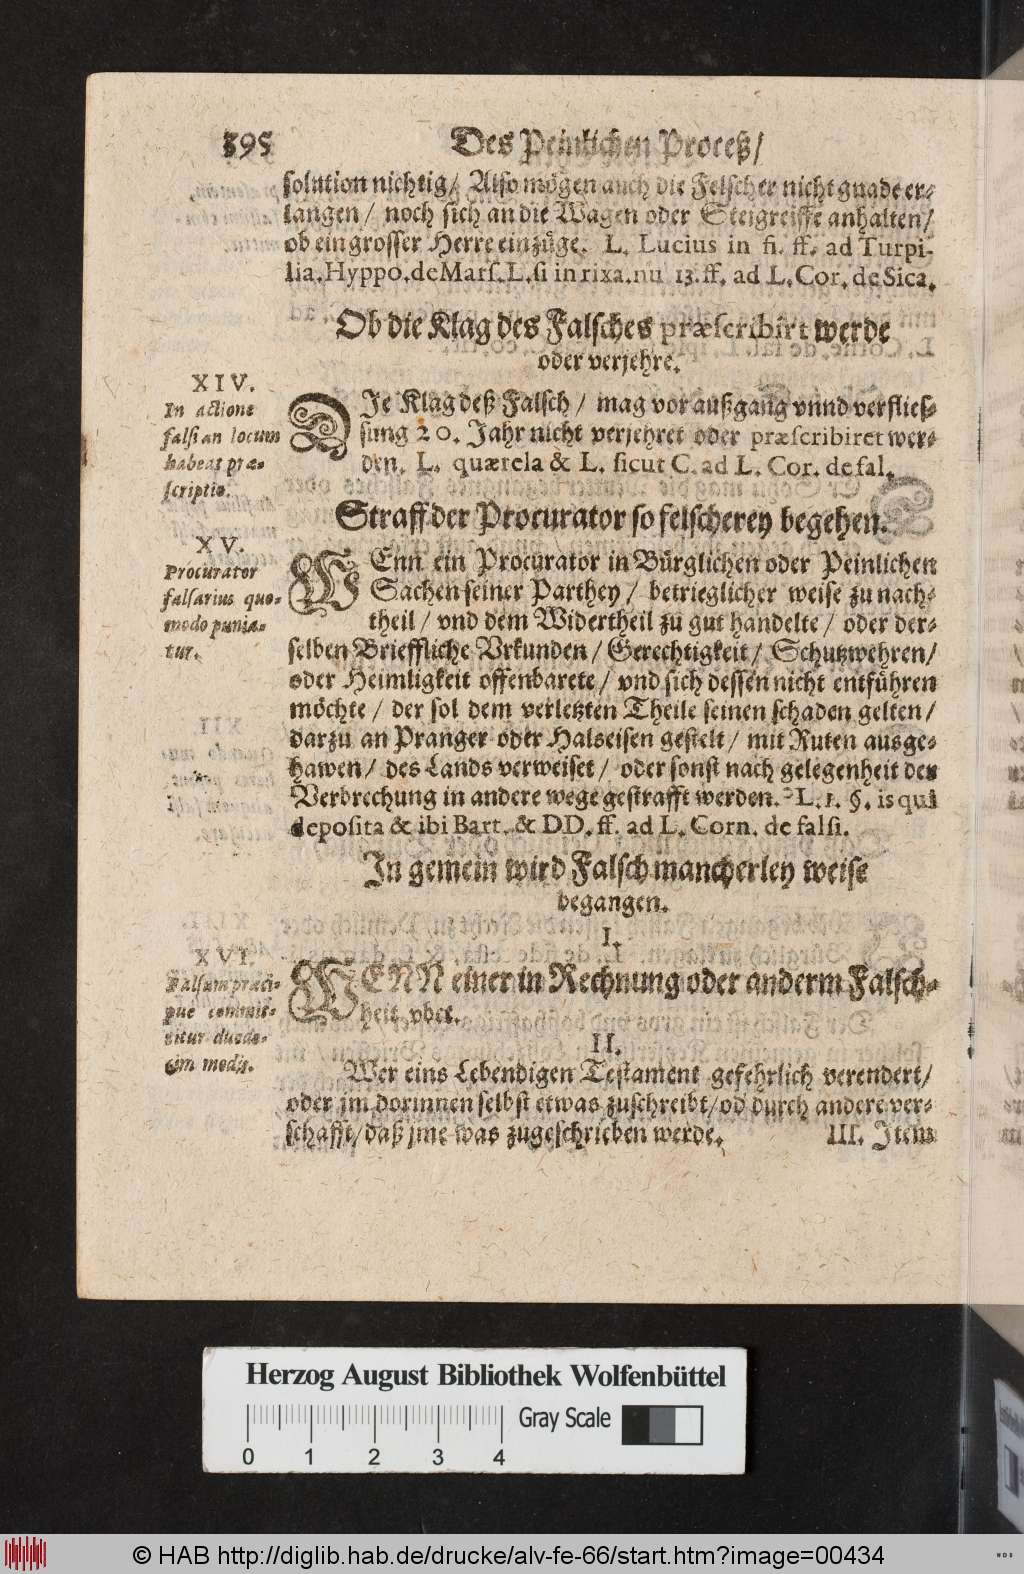 395 Des Peinlichen Proceß/
solution nichtig/ Also mögen auch die Felscher nicht gnade er-
langen/ noch sich an die Wagen oder Steigreiffe anhalten/
ob ein grosser Herre einzüge. L. Lucius in fi. ff. ad Turpi-
lia. Hyppo. de Mars. L. si in rixa. nu 13. ff. ad L. Cor. de Sica.
Ob die Klag des Falsches præscribirt werde
oder verjehre.
XIV.
In actione
falsi an locum
habeat præ-
scriptio.
DJe Klag deß Falsch/ mag vor außgang vnnd verflies-
sung 20. Jahr nicht verjehret oder præscribiret wer-
den. L. quærela & L. sicut C. ad L. Cor. de fal.
Straff der Procurator so felscherey begehen.
XV.
Procurator
falsarius quo-
modo punia-
tur.
WEnn ein Procurator in Bürglichen oder Peinlichen
Sachen seiner Parthey/ betrieglicher weise zu nach-
theil/ vnd dem Widertheil zu gut handelte/ oder der-
selben Brieffliche Vrkunden/ Gerechtigkeit/ Schutzwehren/
oder Heimligkeit offenbarete/ vnd sich dessen nicht entführen
möchte/ der sol dem verletzten Theile seinen schaden gelten/
darzu an Pranger oder Halseisen gestelt/ mit Ruten ausge-
hawen/ des Lands verweiset/ oder sonst nach gelegenheit der
Verbrechung in andere wege gestrafft werden. L. 1. §. is qui
deposita & ibi Bart. & DD. ff. ad L. Corn. de falsi.
In gemein wird Falsch mancherley weise
begangen.
I.
XVI.
Falsum præci-
pue commit-
titur duode-
cim modis.
WENN einer in Rechnung oder anderm Falsch-
heit vbet.
II.
Wer eins Lebendigen Testament gefehrlich verendert/
oder jm dorinnen selbst etwas zuschreibt/ od durch andere ver-
schafft/ daß jme was zugeschrieben werde. III. Item
Herzog August Bibliothek Wolfenbüttel
Gray Scale
0 1 2 3 4
© HAB http://diglib.hab.de/drucke/alv-fe-66/start.htm?image=00434